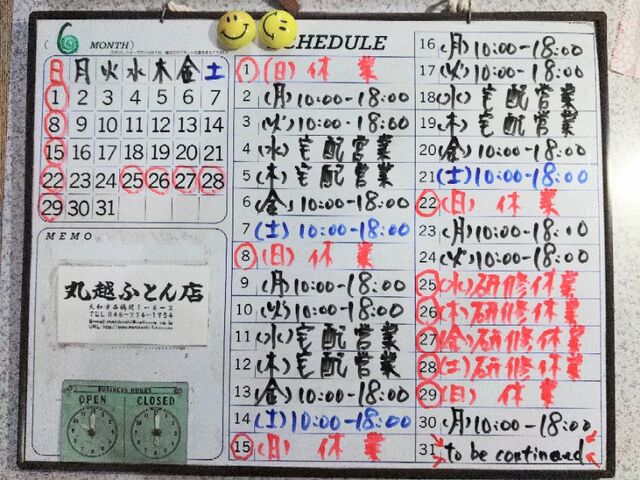 ( 6 MONTH)
SCHEDULE
日 月 火 水 木 金 土
1 2 3 4 5 6 7
8 9 10 11 12 13 14
15 16 17 18 19 20 21
22 23 24 25 26 27 28
29 30 31
MEMO
丸越ふとん店
大和市西鶴間1-8-2
TEL 046-274-1954
BUSINESS HOURS
OPEN CLOSED
1 (日) 休業
2 (月) 10:00-18:00
3 (火) 10:00-18:00
4 (水) 宅配営業
5 (木) 宅配営業
6 (金) 10:00-18:00
7 (土) 10:00-18:00
8 (日) 休業
9 (月) 10:00-18:00
10 (火) 10:00-18:00
11 (水) 宅配営業
12 (木) 宅配営業
13 (金) 10:00-18:00
14 (土) 10:00-18:00
15 (日) 休業
16 (月) 10:00-18:00
17 (火) 10:00-18:00
18 (水) 宅配営業
19 (木) 宅配営業
20 (金) 10:00-18:00
21 (土) 10:00-18:00
22 (日) 休業
23 (月) 10:00-18:00
24 (火) 10:00-18:00
25 (水) 研修休業
26 (木) 研修休業
27 (金) 研修休業
28 (土) 研修休業
29 (日) 休業
30 (月) 10:00-18:00
31 to be continued